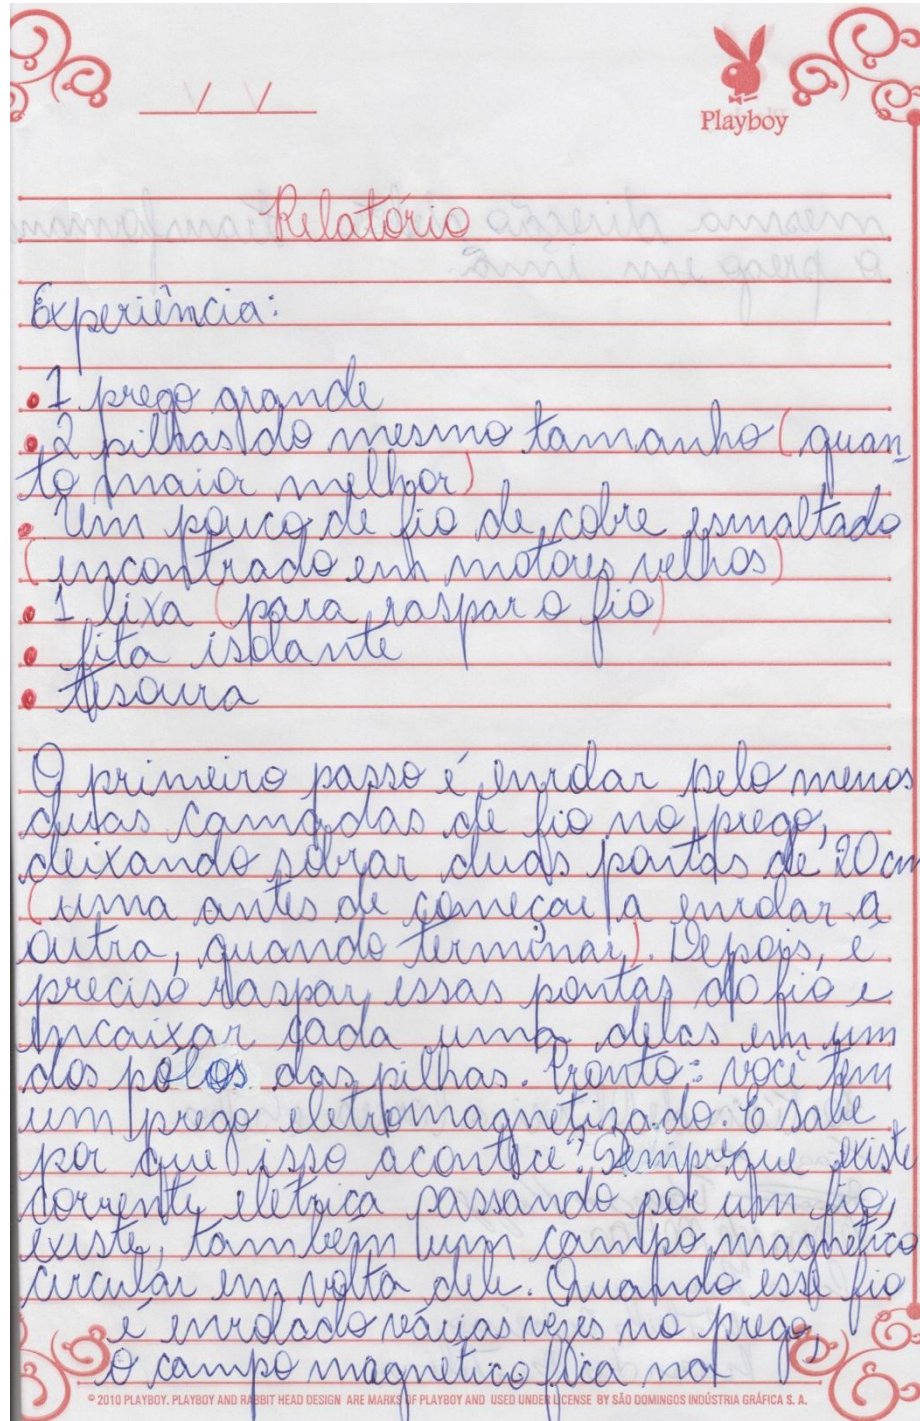 Playboy
Relatório
Experiência:
• 1 prego grande
• 2 pilhas do mesmo tamanho (quan-
to maior melhor)
• Um pouco de fio de cobre esmaltado
(encontrado em motores velhos)
• 1 lixa (para raspar o fio)
• fita isolante
• tesoura
O primeiro passo é enrolar pelo menos
duas camadas de fio no prego,
deixando sobrar duas pontas de 20 cm
(uma antes de começar a enrolar a
outra, quando terminar). Depois, é
preciso raspar essas pontas do fio e
encaixar cada uma delas em um
dos pólos das pilhas. Pronto: você tem
um prego eletromagnetizado. E sabe
por que isso acontece? Sempre que existe
corrente elétrica passando por um fio,
existe, também um campo magnético
circular em volta dele. Quando esse fio
é enrolado várias vezes no prego,
o campo magnético fica na
© 2010 PLAYBOY. PLAYBOY AND RABBIT HEAD DESIGN ARE MARKS OF PLAYBOY AND USED UNDER LICENSE BY SÃO DOMINGOS INDÚSTRIA GRÁFICA S. A.